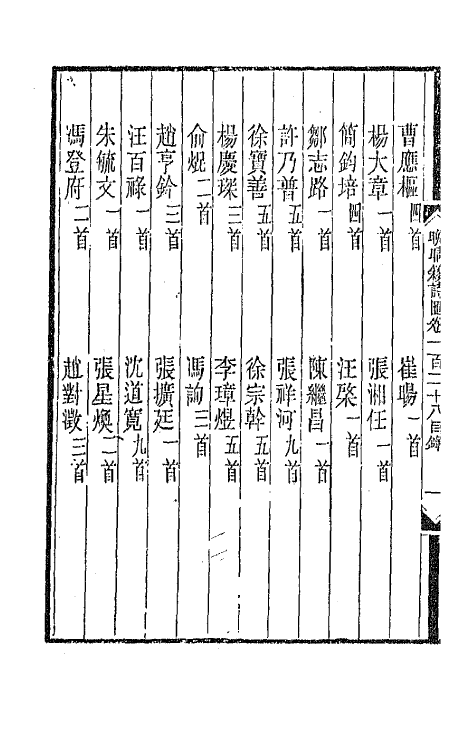 曹應樞四首　崔暘一首
楊大章一首　張湘任一首
簡鈞培四首　汪棨一首
鄒志路一首　陳繼昌一首
許乃普五首　張祥河九首
徐寶善五首　徐宗幹五首
楊慶琛三首　李璋煜五首
俞焜二首　馮詢三首
趙亨鈐三首　張擴廷一首
汪百祿一首　沈道寬九首
朱毓文一首　張星煥二首
馮登府二首　趙對澂三首
晚晴簃詩匯卷一百二十八目錄　一